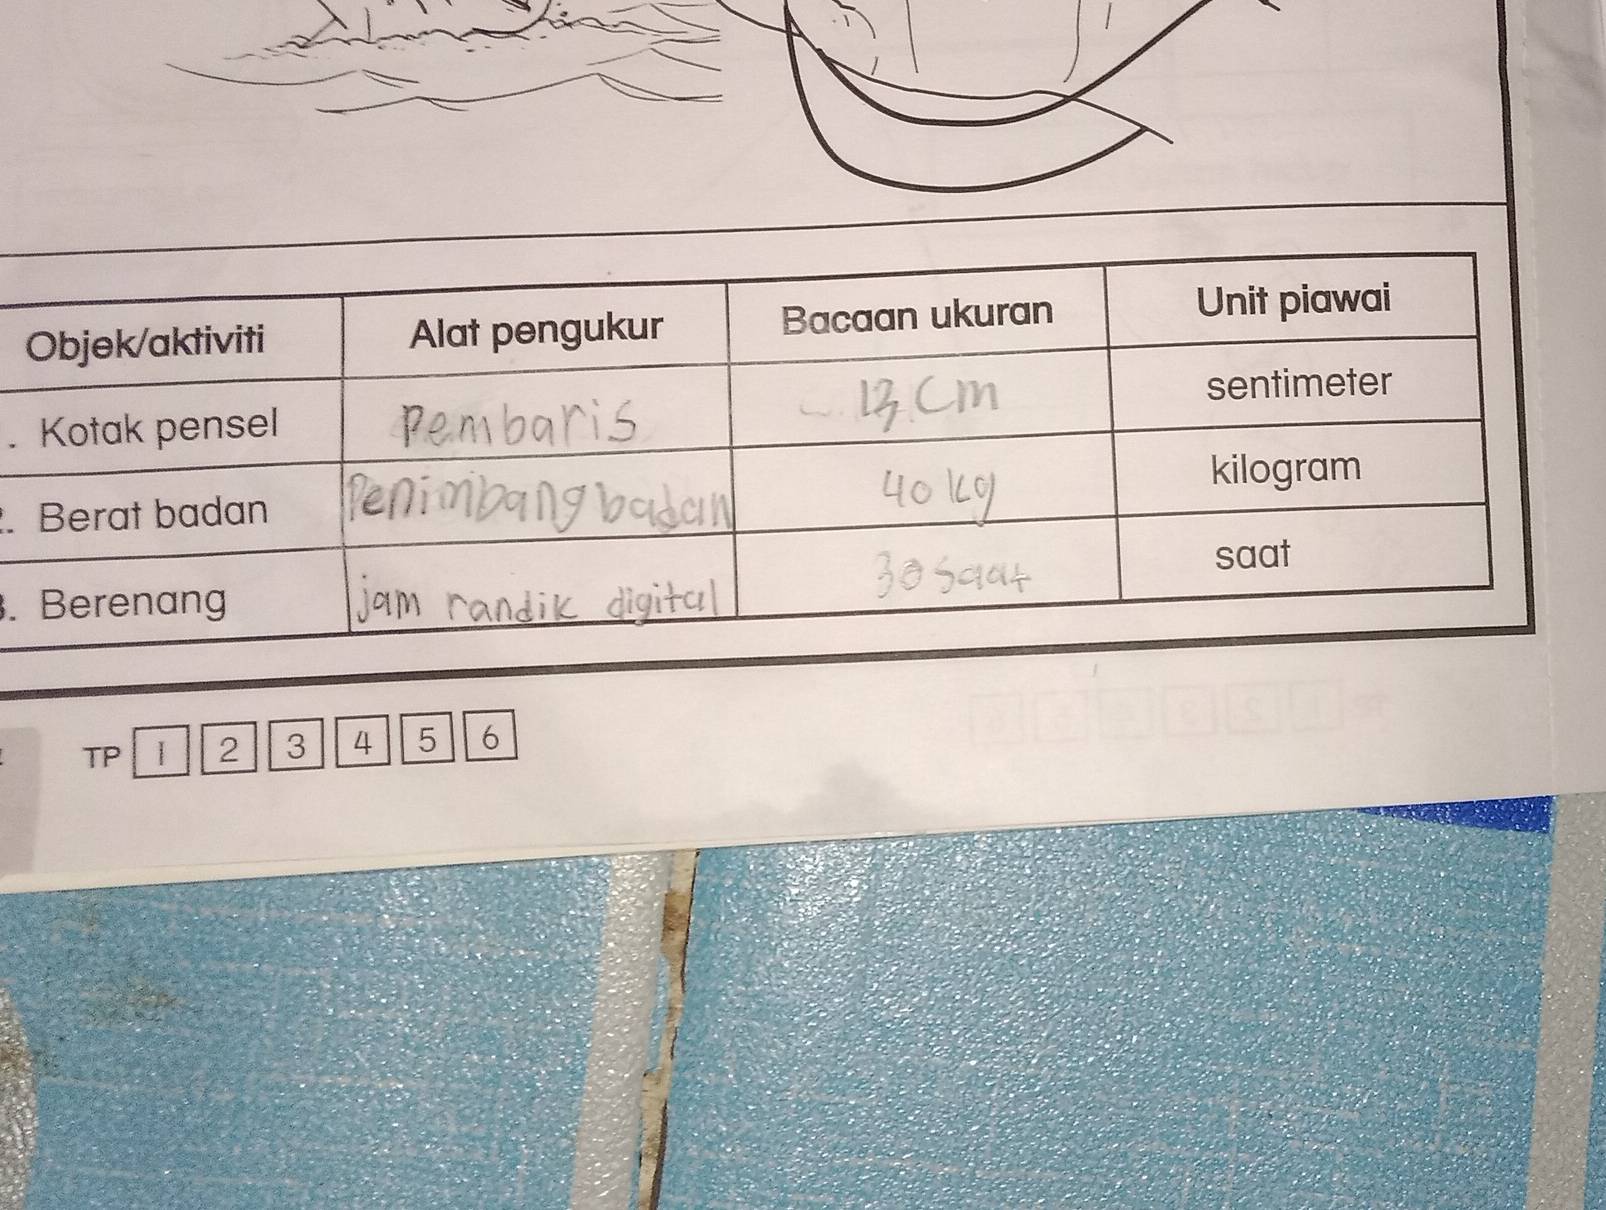 Objek/aktiviti Alat pengukur Bacaan ukuran Unit piawai
. Kotak pensel Pembaris 13 cm sentimeter
2. Berat badan Penimbang badan 40 kg kilogram
3. Berenang jam randik digital 30 saat saat
TP 1 2 3 4 5 6